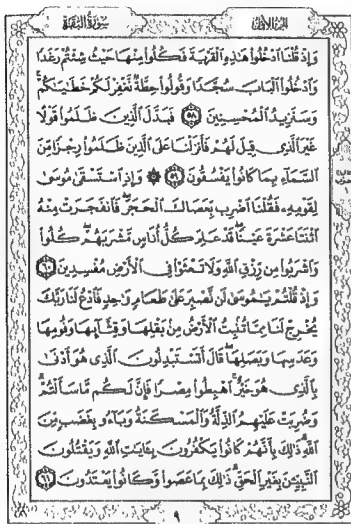 الجزء الأول
سورة البقرة
وَإِذْ قُلْنَا ادْخُلُوا هَٰذِهِ الْقَرْيَةَ فَكُلُوا مِنْهَا حَيْثُ شِئْتُمْ رَغَدًا
وَادْخُلُوا الْبَابَ سُجَّدًا وَقُولُوا حِطَّةٌ نَغْفِرْ لَكُمْ خَطَايَاكُمْ
وَسَنَزِيدُ الْمُحْسِنِينَ ٥٨ فَبَدَّلَ الَّذِينَ ظَلَمُوا قَوْلًا
غَيْرَ الَّذِي قِيلَ لَهُمْ فَأَنْزَلْنَا عَلَى الَّذِينَ ظَلَمُوا رِجْزًا مِنَ
السَّمَاءِ بِمَا كَانُوا يَفْسُقُونَ ٥٩ ۞ وَإِذِ اسْتَسْقَىٰ مُوسَىٰ
لِقَوْمِهِ فَقُلْنَا اضْرِبْ بِعَصَاكَ الْحَجَرَ فَانْفَجَرَتْ مِنْهُ
اثْنَتَا عَشْرَةَ عَيْنًا قَدْ عَلِمَ كُلُّ أُنَاسٍ مَشْرَبَهُمْ كُلُوا
وَاشْرَبُوا مِنْ رِزْقِ اللَّهِ وَلَا تَعْثَوْا فِي الْأَرْضِ مُفْسِدِينَ ٦٠
وَإِذْ قُلْتُمْ يَا مُوسَىٰ لَنْ نَصْبِرَ عَلَىٰ طَعَامٍ وَاحِدٍ فَادْعُ لَنَا رَبَّكَ
يُخْرِجْ لَنَا مِمَّا تُنْبِتُ الْأَرْضُ مِنْ بَقْلِهَا وَقِثَّائِهَا وَفُومِهَا
وَعَدَسِهَا وَبَصَلِهَا قَالَ أَتَسْتَبْدِلُونَ الَّذِي هُوَ أَدْنَىٰ
بِالَّذِي هُوَ خَيْرٌ اهْبِطُوا مِصْرًا فَإِنَّ لَكُمْ مَا سَأَلْتُمْ
وَضُرِبَتْ عَلَيْهِمُ الذِّلَّةُ وَالْمَسْكَنَةُ وَبَاءُوا بِغَضَبٍ مِنَ
اللَّهِ ذَٰلِكَ بِأَنَّهُمْ كَانُوا يَكْفُرُونَ بِآيَاتِ اللَّهِ وَيَقْتُلُونَ
النَّبِيِّينَ بِغَيْرِ الْحَقِّ ذَٰلِكَ بِمَا عَصَوْا وَكَانُوا يَعْتَدُونَ ٦١
٩